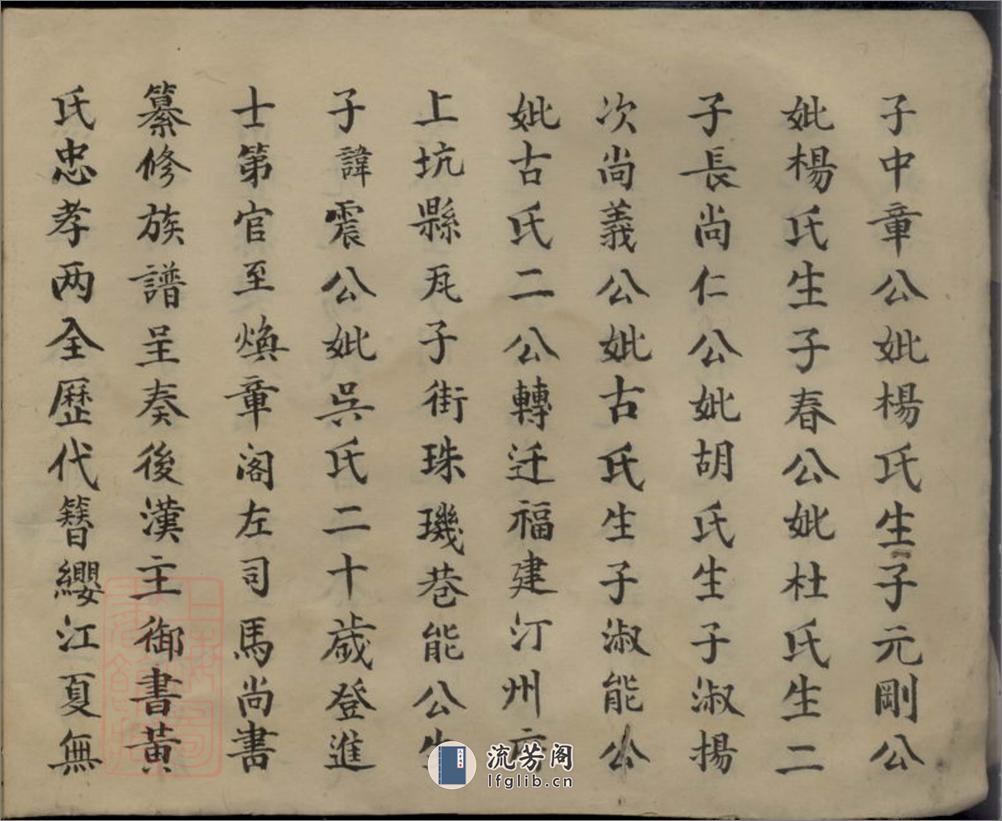 子中章公妣楊氏生子元剛公
妣楊氏生子春公妣杜氏生二
子長尚仁公妣胡氏生子淑揚
次尚義公妣古氏生子淑能公
妣古氏二公轉迁福建汀州
上坑縣瓦子街珠璣巷能公生
子諱震公妣吳氏二十歲登進
士第官至煥章阁左司馬尚書
纂修族譜呈奏後漢主御書黃
氏忠孝两全歷代簪纓江夏無
流芳阁
lfglib.cn